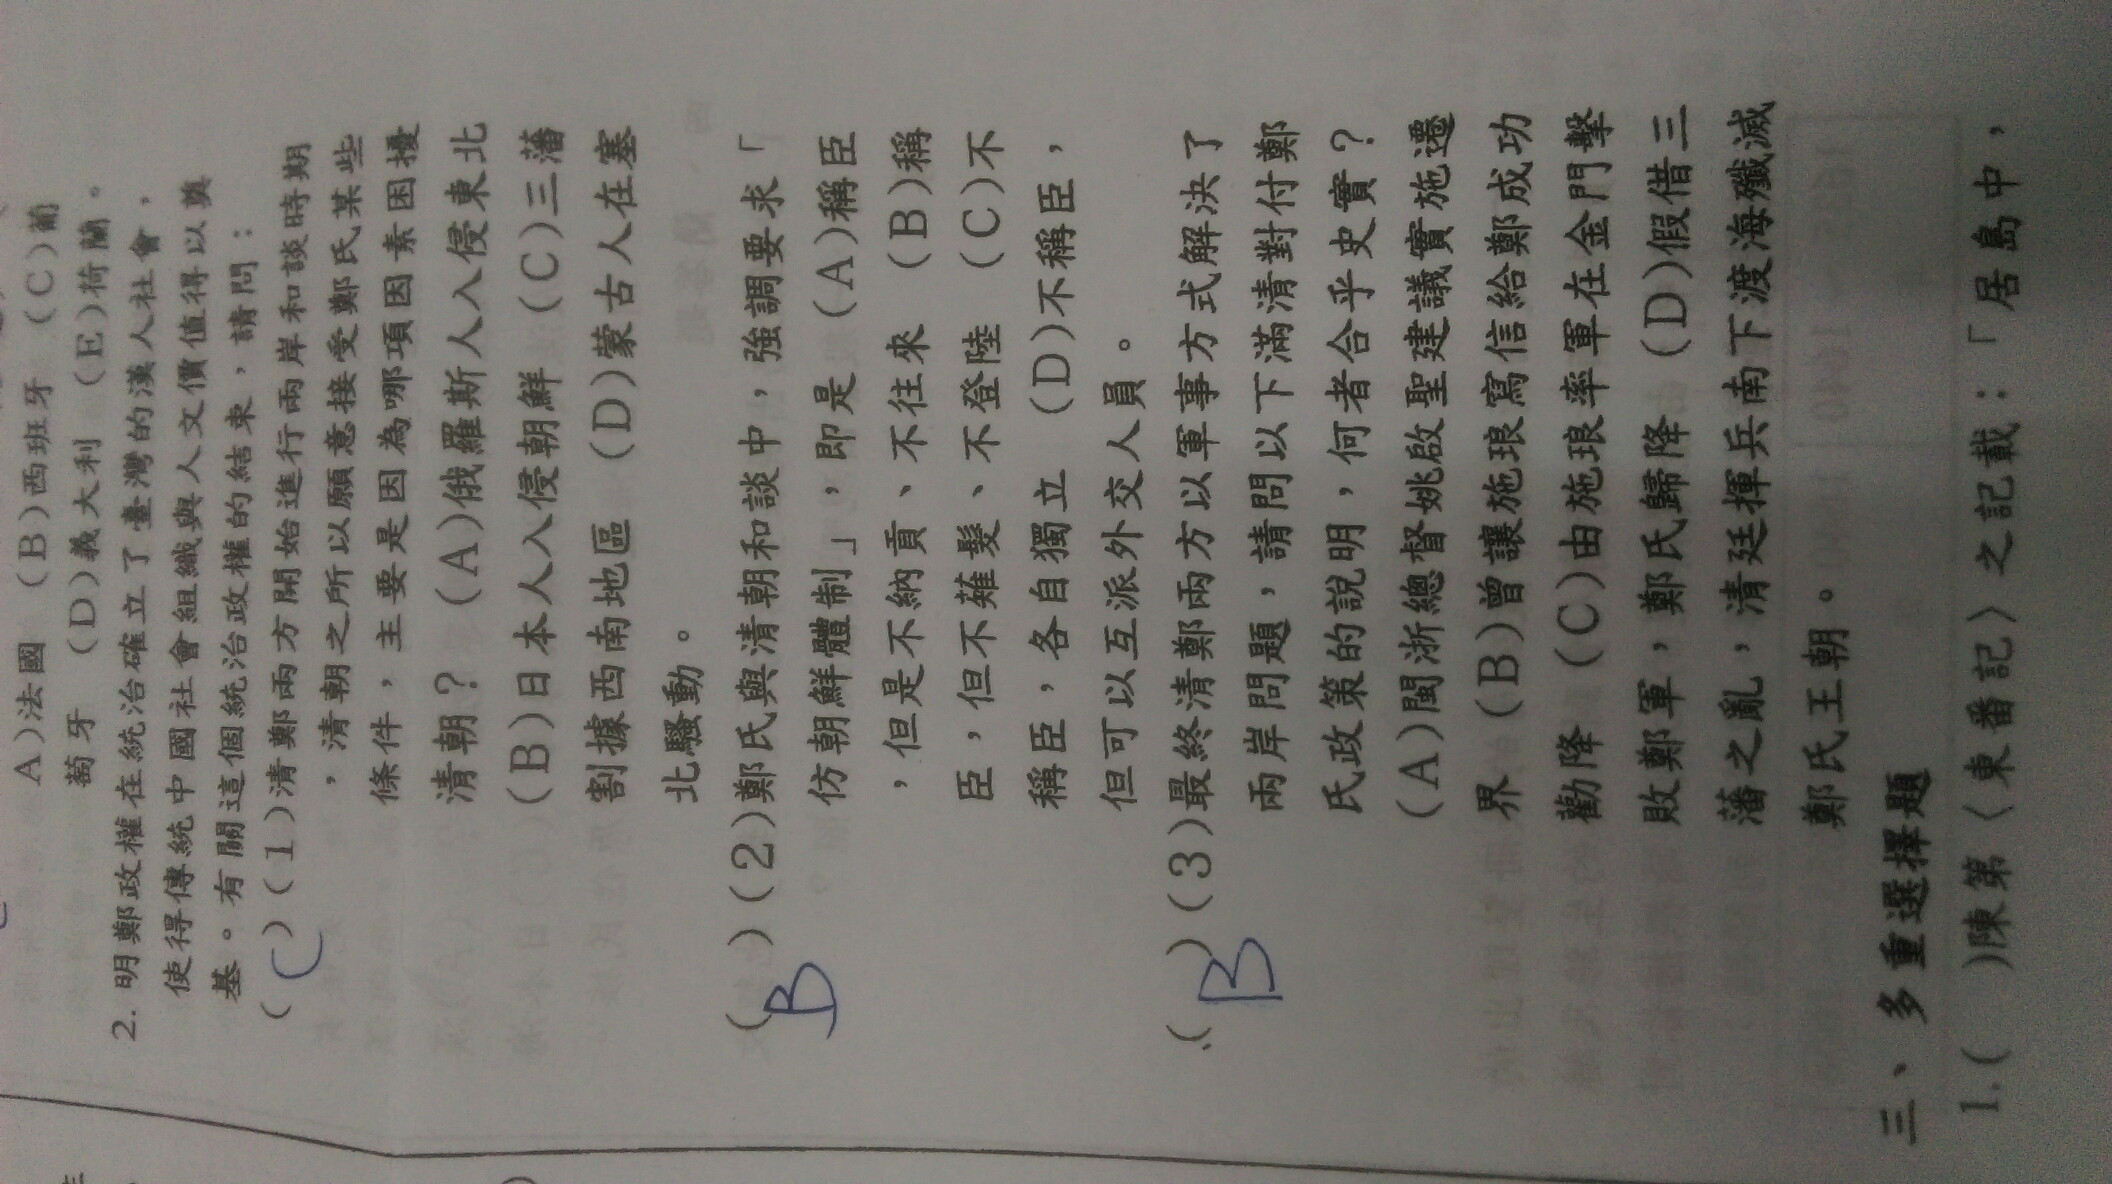 A)法國 (B)西班牙 (C)葡
萄牙 (D)義大利 (E)荷蘭。
2. 明鄭政權在統治確立了臺灣的漢人社會，
使得傳統中國社會組織與人文價值得以奠
基。有關這個統治政權的結束，請問：
( C )(1)清鄭兩方開始進行兩岸和談時期
，清朝之所以願意接受鄭氏某些
條件，主要是因為哪項因素困擾
清朝？ (A)俄羅斯人入侵東北
(B)日本人入侵朝鮮 (C)三藩
割據西南地區 (D)蒙古人在塞
北騷動。
( B )(2)鄭氏與清朝和談中，強調要求「
仿朝鮮體制」，即是 (A)稱臣
，但是不納貢、不往來 (B)稱
臣，但不薙髮、不登陸 (C)不
稱臣，各自獨立 (D)不稱臣，
但可以互派外交人員。
( B )(3)最終清鄭兩方以軍事方式解決了
兩岸問題，請問以下滿清對付鄭
氏政策的說明，何者合乎史實？
(A)閩浙總督姚啟聖建議實施遷
界 (B)曾讓施琅寫信給鄭成功
勸降 (C)由施琅率軍在金門擊
敗鄭軍，鄭氏歸降 (D)假借三
藩之亂，清廷揮兵南下渡海殲滅
鄭氏王朝。
三、多重選擇題
1.( )陳第〈東番記〉之記載：「居島中，